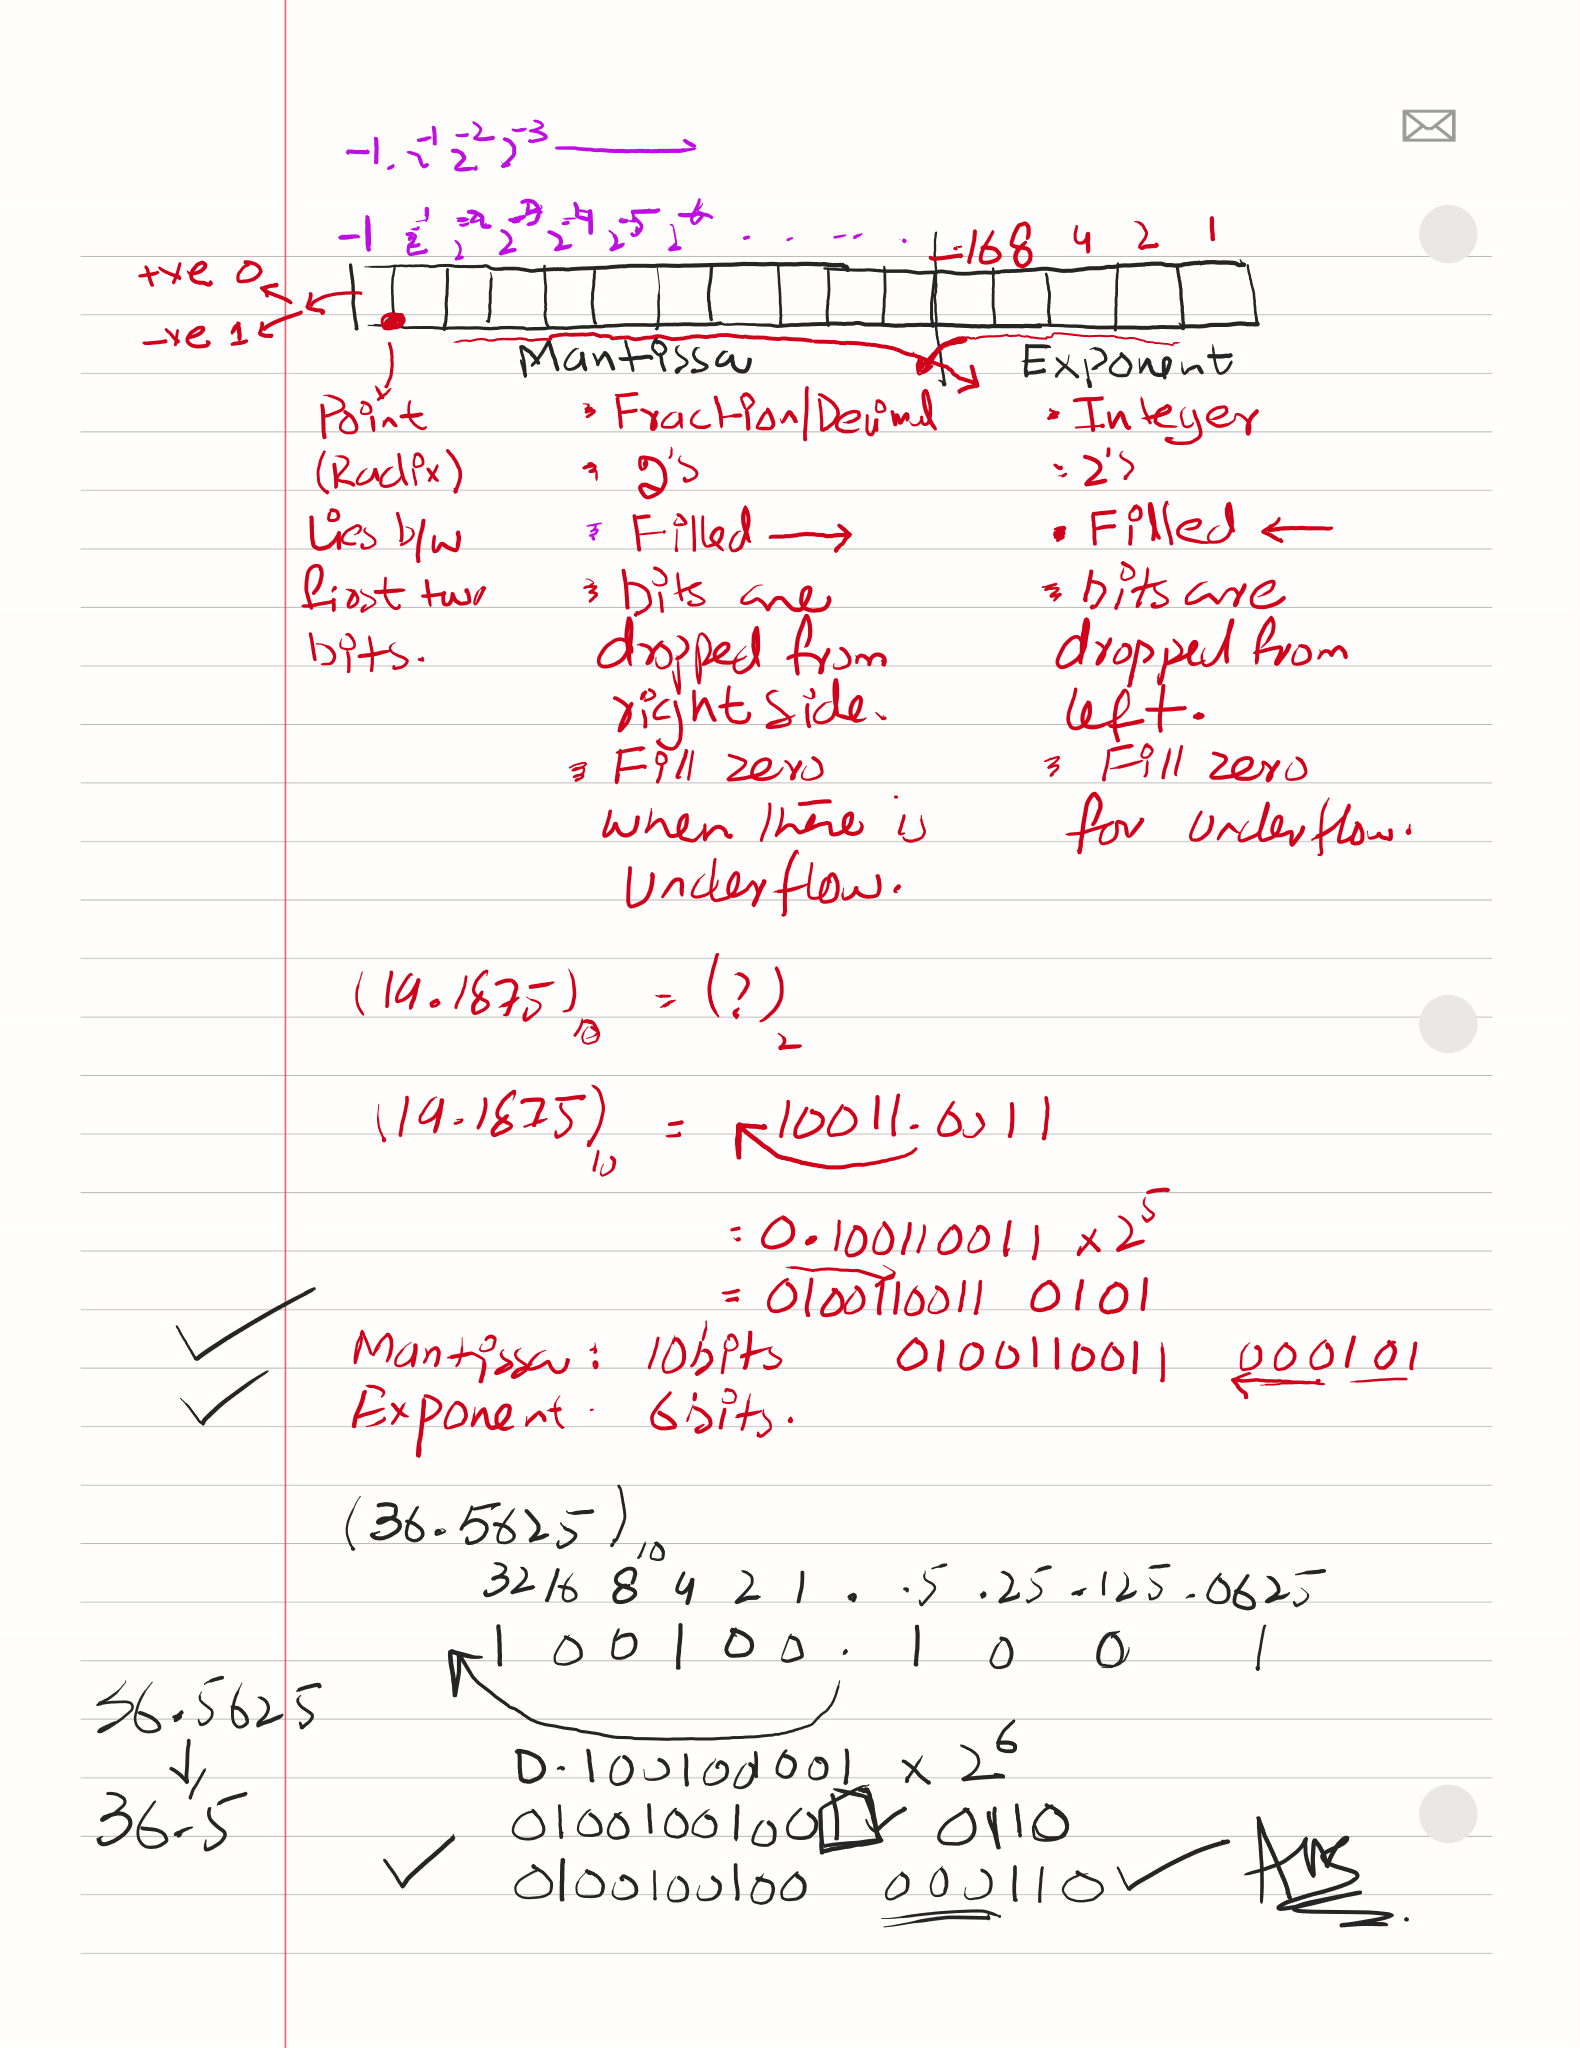 -1. 2⁻¹ 2⁻² 2⁻³ →
-1 2⁻¹ 2⁻² 2⁻³ 2⁻⁴ 2⁻⁵ 2⁻⁶ . . -- . -16 8 4 2 1
+ve 0
-ve 1
Mantissa Exponent
Point
(Radix)
Lies b/w
first two
bits.
Fraction/Decimal
2's
Filled →
bits are
dropped from
right side.
Fill zero
when there is
Underflow.
Integer
2's
Filled ←
bits are
dropped from
left.
Fill zero
for underflow.
(19.1875)₁₀ = (?)₂
(19.1875)₁₀ = 10011.0011
= 0.100110011 × 2⁵
= 0100110011 0101
Mantissa: 10bits 0100110011 000101
Exponent. 6bits.
(36.5625)₁₀
32 16 8 4 2 1 . .5 .25 .125 .0625
1 0 0 1 0 0 . 1 0 0 1
36.5625
↓
36.5
0.100100100 1 × 2⁶
0100100100 1 ✓ 0110
✓ 0100100100 000110 ✓ Ans.